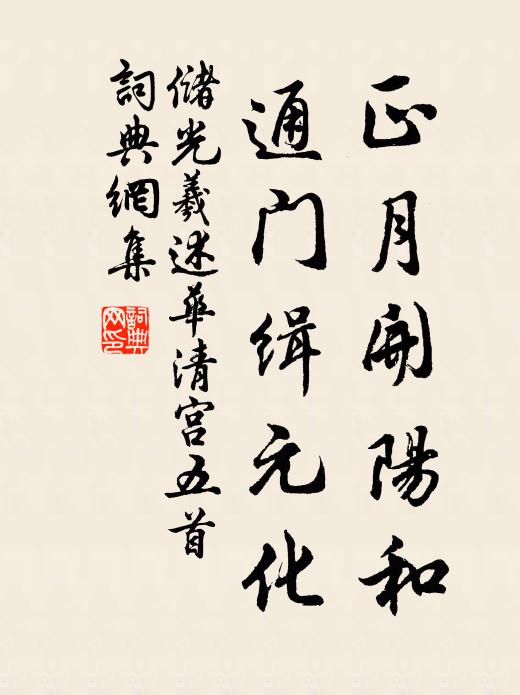 正月開陽和
通门缉元化
儲光羲述華清宫五首
詞典網集
詞典网印